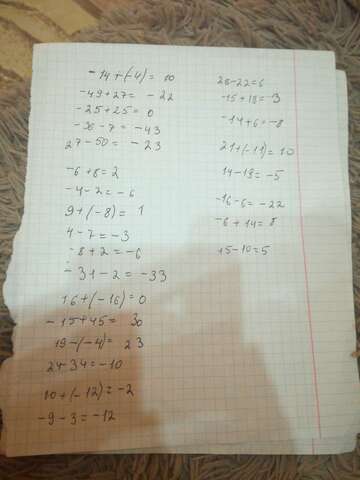 -14+(-4)= 10
-49+27= -22
-25+25= 0
-36-7= -43
27-50= -23
-6+8= 2
-4-2= -6
9+(-8)= 1
4-7= -3
-8+2= -6
-31-2= -33
16+(-16)=0
-15+45= 30
19-(-4)= 23
24-34= -10
10+(-12)= -2
-9-3= -12
28-22=6
-15+18= 3
-14+6= -8
21+(-11)= 10
14-19= -5
-16-6= -22
-6+14= 8
15-10= 5